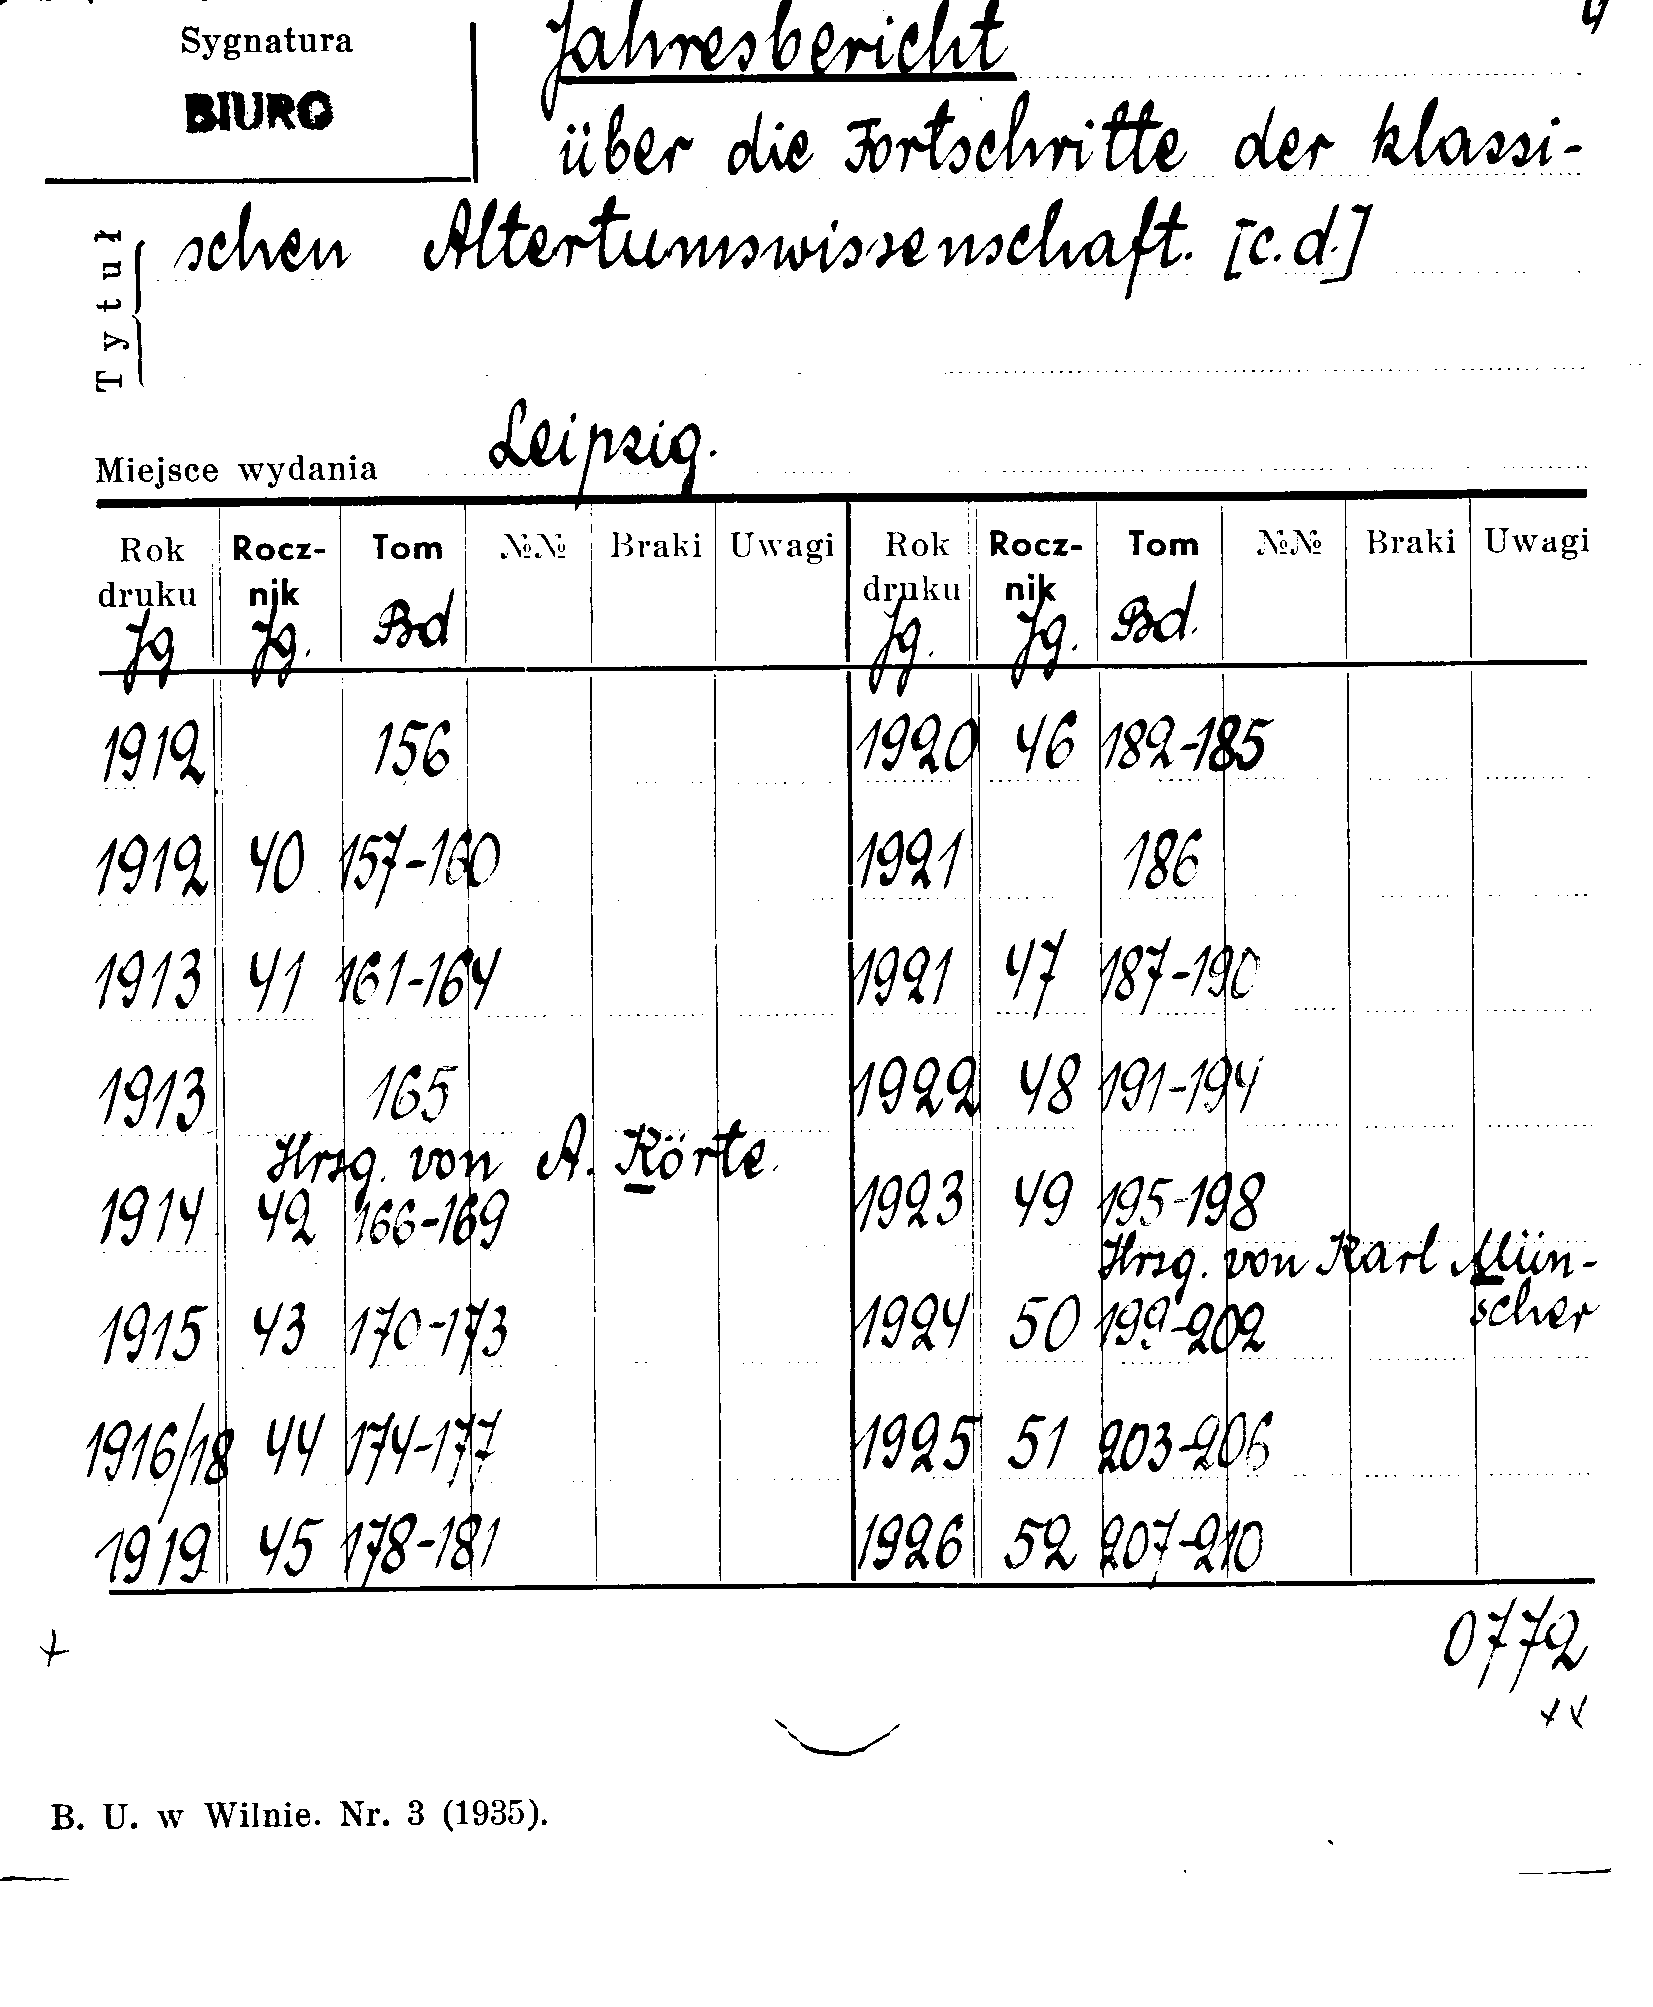 4
Sygnatura
BIURO
Jahresbericht
über die Fortschritte der klassi-
schen Altertumswissenschaft. [c.d.]
Tytuł
Miejsce wydania Leipzig.
Rok druku Rocz-nik Tom №№ Braki Uwagi Rok druku Rocz-nik Tom №№ Braki Uwagi
Jg Jg. Bd Jg. Jg. Bd.
1912 156 1920 46 182-185
1912 40 157-160 1921 186
1913 41 161-164 1921 47 187-190
1913 165 1922 48 191-194
Hrsg. von A. Körte.
1914 42 166-169 1923 49 195-198
Hrsg. von Karl Mün-
scher
1915 43 170-173 1924 50 199-202
1916/18 44 174-177 1925 51 203-206
1919 45 178-181 1926 52 207-210
0772
B. U. w Wilnie. Nr. 3 (1935).